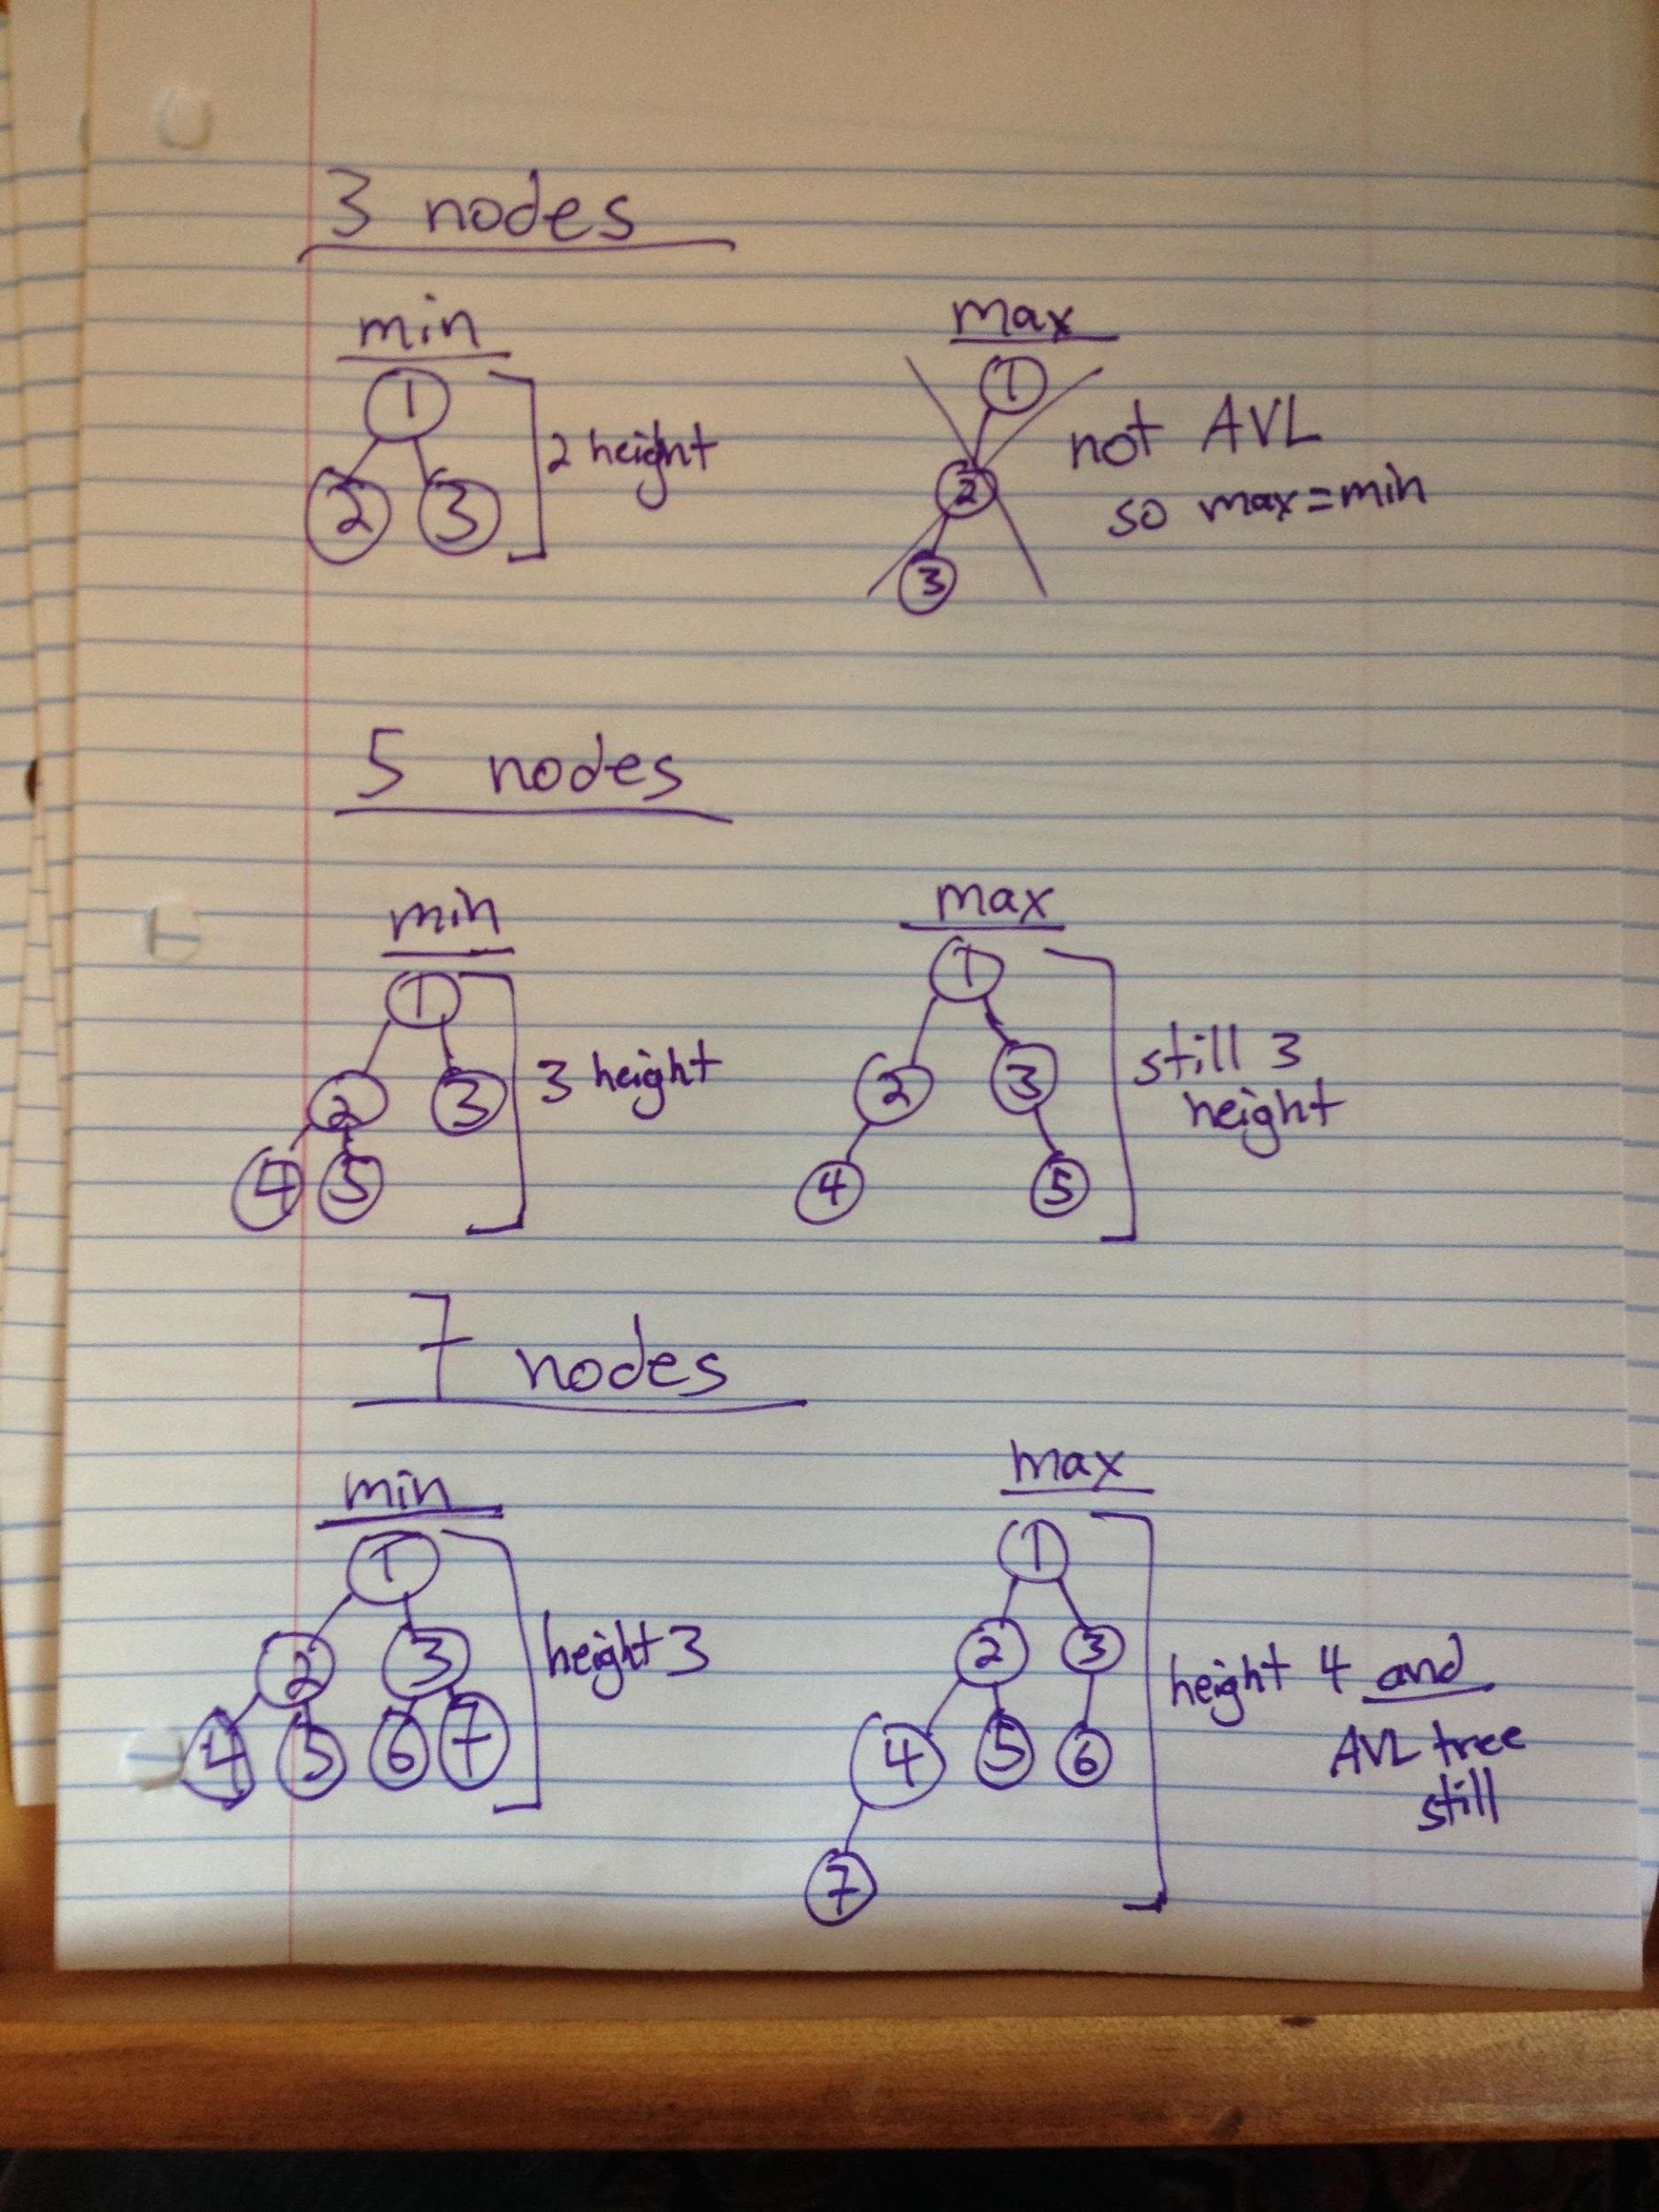 3 nodes
min
max
1
2 3
2 height
1
2
3
not AVL
so max=min
5 nodes
min
max
1
2 3
4 5
3 height
1
2 3
4 5
still 3
height
7 nodes
min
max
1
2 3
4 5 6 7
height 3
1
2 3
4 5 6
7
height 4 and
AVL tree
still